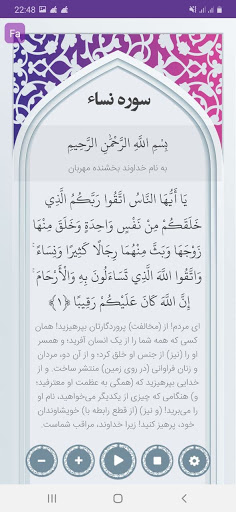 22:48
83%
Fa
سوره نساء
بِسْمِ اللَّهِ الرَّحْمَٰنِ الرَّحِيمِ
به نام خداوند بخشنده مهربان
يَا أَيُّهَا النَّاسُ اتَّقُوا رَبَّكُمُ الَّذِي
خَلَقَكُمْ مِنْ نَفْسٍ وَاحِدَةٍ وَخَلَقَ مِنْهَا
زَوْجَهَا وَبَثَّ مِنْهُمَا رِجَالًا كَثِيرًا وَنِسَاءً ۚ
وَاتَّقُوا اللَّهَ الَّذِي تَسَاءَلُونَ بِهِ وَالْأَرْحَامَ ۚ
إِنَّ اللَّهَ كَانَ عَلَيْكُمْ رَقِيبًا ﴿۱﴾
ای مردم! از (مخالفت) پروردگارتان بپرهیزید! همان
کسی که همه شما را از یک انسان آفرید؛ و همسر
او را (نیز) از جنس او خلق کرد؛ و از آن دو، مردان
و زنان فراوانی (در روی زمین) منتشر ساخت. و از
خدایی بپرهیزید که (همگی به عظمت او معترفید؛
و) هنگامی که چیزی از یکدیگر می‌خواهید، نام او
را می‌برید! (و نیز) (از قطع رابطه با) خویشاوندان
خود، پرهیز کنید! زیرا خداوند، مراقب شماست.